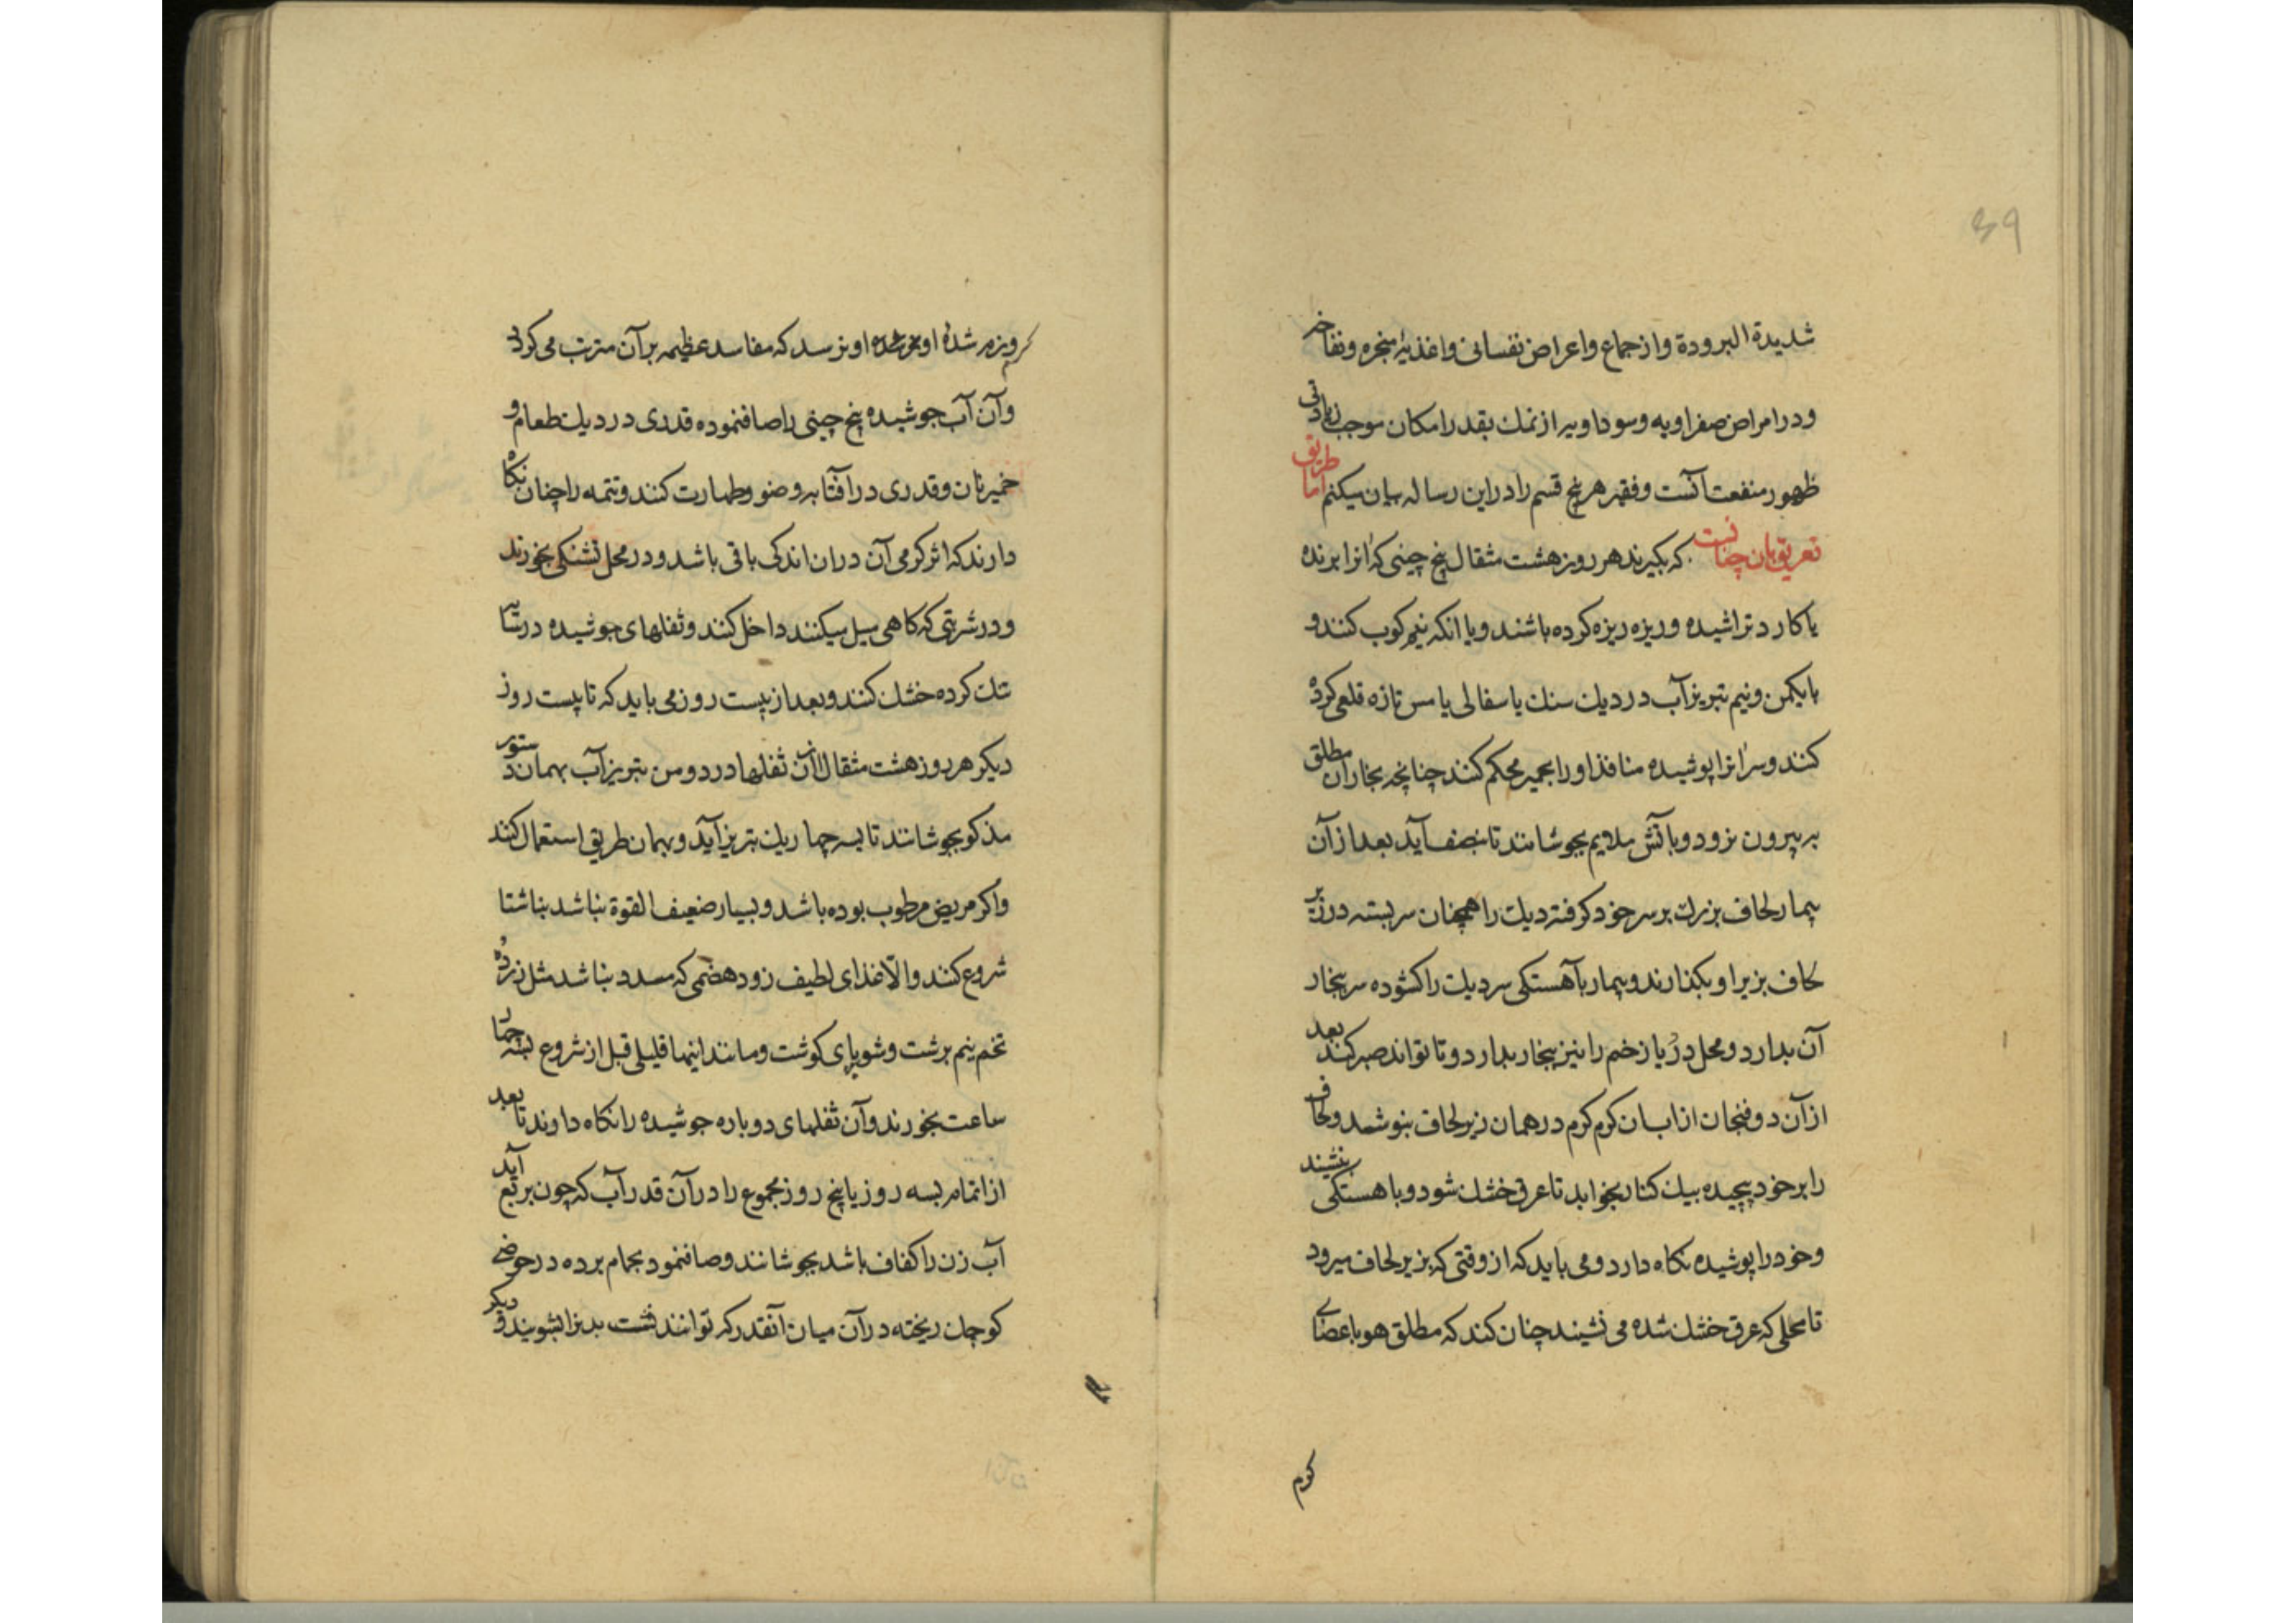 39
شدیدة البرودة و از جماع و اعراض نفسانی و اغذیهٔ مبخره و نفاخه
و در امراض صفراویه و سوداویه از نمك بقدر امکان موجب زیادتی
ظهور منفعت آنست و فقیر هر پنج قسم را در این رساله بیان میکنم اما طریق
تعریق بان چنانست که بکیرند هر روز هشت مثقال پنج چینی که انرا برنده
یا کارد تراشیده و ریزه ریزه کرده باشند و یا انکه نیم کوب کنند و
با یکمن و نیم تبریز آب در دیك سنك یا سفالی یا مس تازه قلعی کرده
کنند و سر انرا پوشیده منافذ او را بخمیر محکم کنند چنانچه بخار ان مطلق
به بیرون نرود و با آتش ملایم بجوشانند تا بنصف آید بعد از آن
بیمار لحاف بزرك بر سر خود کرفته دیك را همچنان سر بسته در زیر
لحاف بزیر او بکذارند و بیمار بآهستکی سر دیك را کشوده سر ببخار
آن بدارد و محل درد یا زخم را نیز ببخار بدارد و تا تواند صبر کند بعد
از آن دو فنجان از ابان کرم کرم در همان زیر لحاف بنوشد و لحاف
را بر خود پیچیده بیك کنار بخوابد تا عرق خشك شود و باهستکی بنشیند
و خود را پوشیده نکاه دارد و می باید که از وقتی که بزیر لحاف میرود
تا محلی که عرق خشك شده می نشیند چنان کند که مطلق هوا باعضای
کرم
کرم شدهٔ او نرسد که مفاسد عظیمه بر آن مترتب می کردد
و آن آب جوشیده پنج چینی را صاف نموده قدری در دیك طعام و
خمیر نان و قدری در آفتابه وضو و طهارت کنند و تتمه را چنان نکاه
دارند که اثر کرمی آن در ان اندکی باقی باشد و در محل تشنکی بخورند
و در شربتی که کاهی میل میکنند داخل کنند و ثفلهای جوشیده در سایه
تنك کرده خشك کنند و بعد از بیست روز می باید که تا بیست روز
دیکر هر روز هشت مثقال از آن ثفلها در دو من تبریز آب بهمان دستور
مذکور بجوشانند تا بسه چهار یك تبریز آید و بهمان طریق استعمال کنند
و اکر مریض مرطوب بوده باشد و بسیار ضعیف القوة نباشد بناشتا
شروع کنند و الا غذای لطیف زود هضمی که مسدد نباشد مثل زرده
تخم نیم برشت و شوربای کوشت و مانند اینها قلیلی قبل از شروع بسه چهار
ساعت بخورند و آن ثفلهای دوباره جوشیده را نکاه دارند تا بعد
از اتمام بسه روز یا پنج روز مجموع را در آن قدر آب که چون بربع آید
آب زن را کفاف باشد بجوشانند و صاف نمود بحمام برده در حوضی
کوچك ریخته در آن میان آنقدر که توانند نشست بدنرا بشویند و دیکر